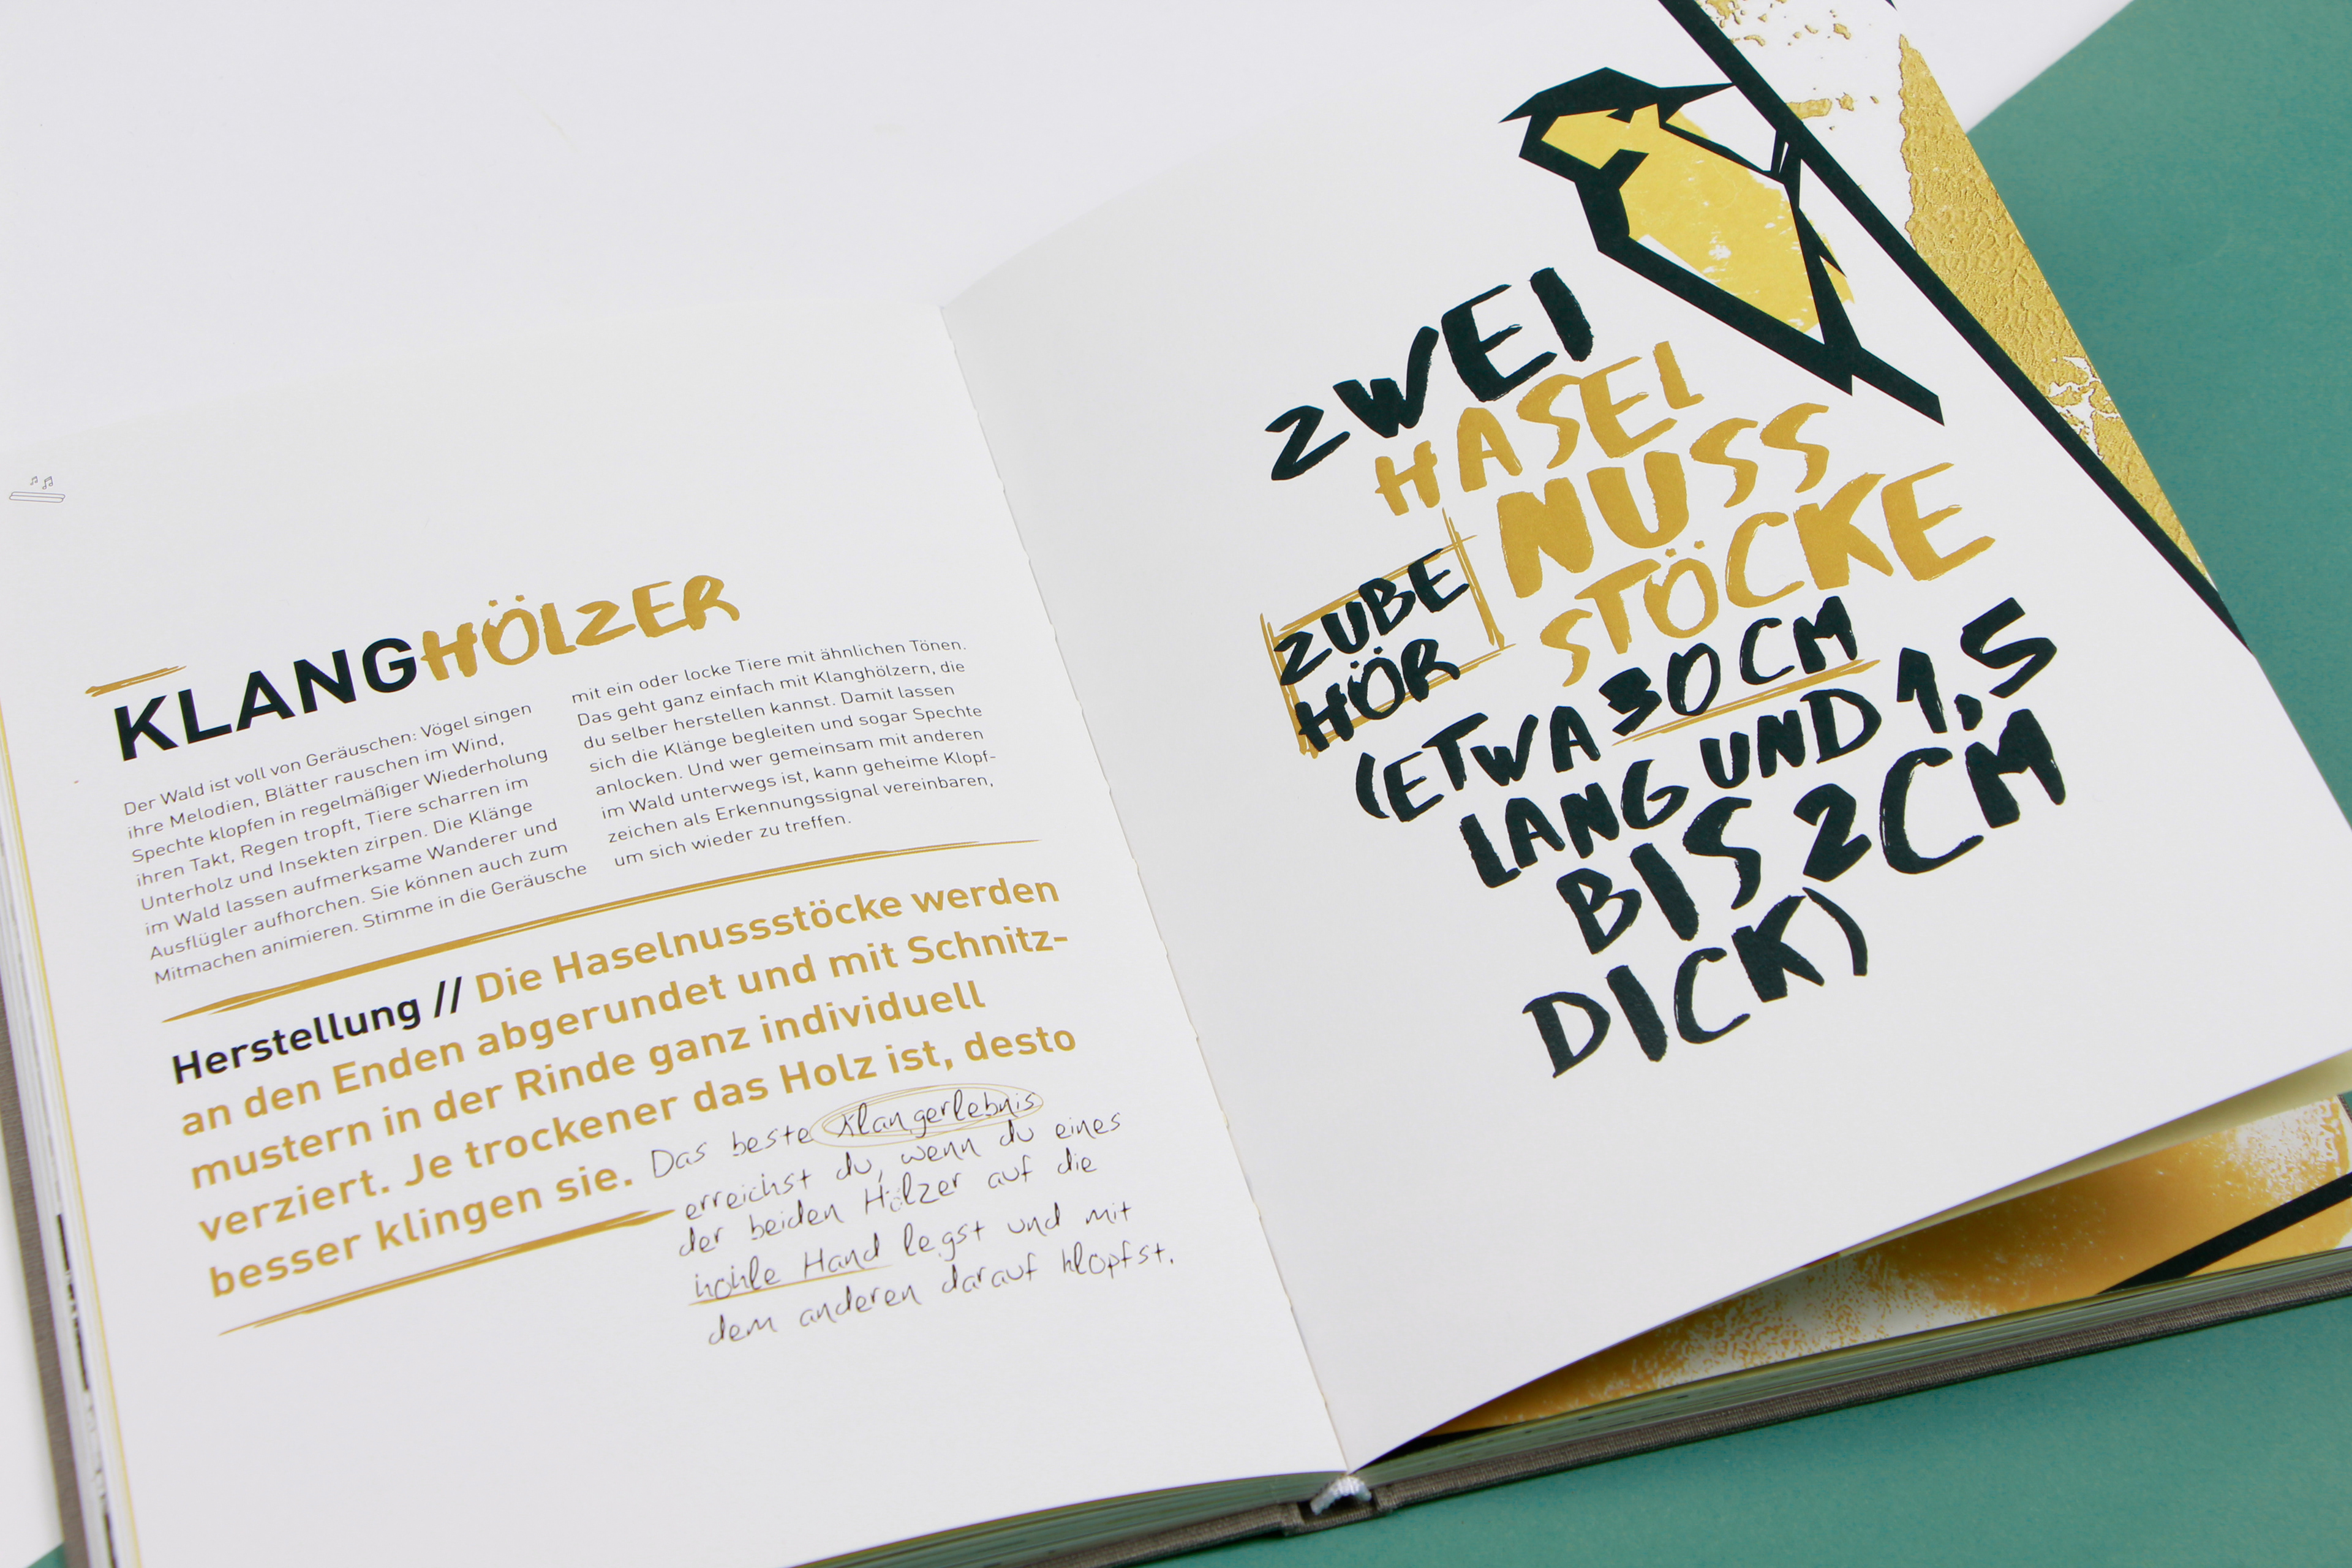 KLANGHÖLZER
Der Wald ist voll von Geräuschen: Vögel singen
ihre Melodien, Blätter rauschen im Wind,
Spechte klopfen in regelmäßiger Wiederholung
ihren Takt, Regen tropft, Tiere scharren im
Unterholz und Insekten zirpen. Die Klänge
im Wald lassen aufmerksame Wanderer und
Ausflügler aufhorchen. Sie können auch zum
Mitmachen animieren. Stimme in die Geräusche
mit ein oder locke Tiere mit ähnlichen Tönen.
Das geht ganz einfach mit Klanghölzern, die
du selber herstellen kannst. Damit lassen
sich die Klänge begleiten und sogar Spechte
anlocken. Und wer gemeinsam mit anderen
im Wald unterwegs ist, kann geheime Klopf-
zeichen als Erkennungssignal vereinbaren,
um sich wieder zu treffen.
Herstellung // Die Haselnussstöcke werden
an den Enden abgerundet und mit Schnitz-
mustern in der Rinde ganz individuell
verziert. Je trockener das Holz ist, desto
besser klingen sie.
Das beste Klangerlebnis
erreichst du, wenn du eines
der beiden Hölzer auf die
hohle Hand legst und mit
dem anderen darauf klopfst.
ZWEI
HASEL
NUSS
STÖCKE
ZUBE
HÖR
(ETWA 30 CM
LANG UND 1,5
BIS 2 CM
DICK)